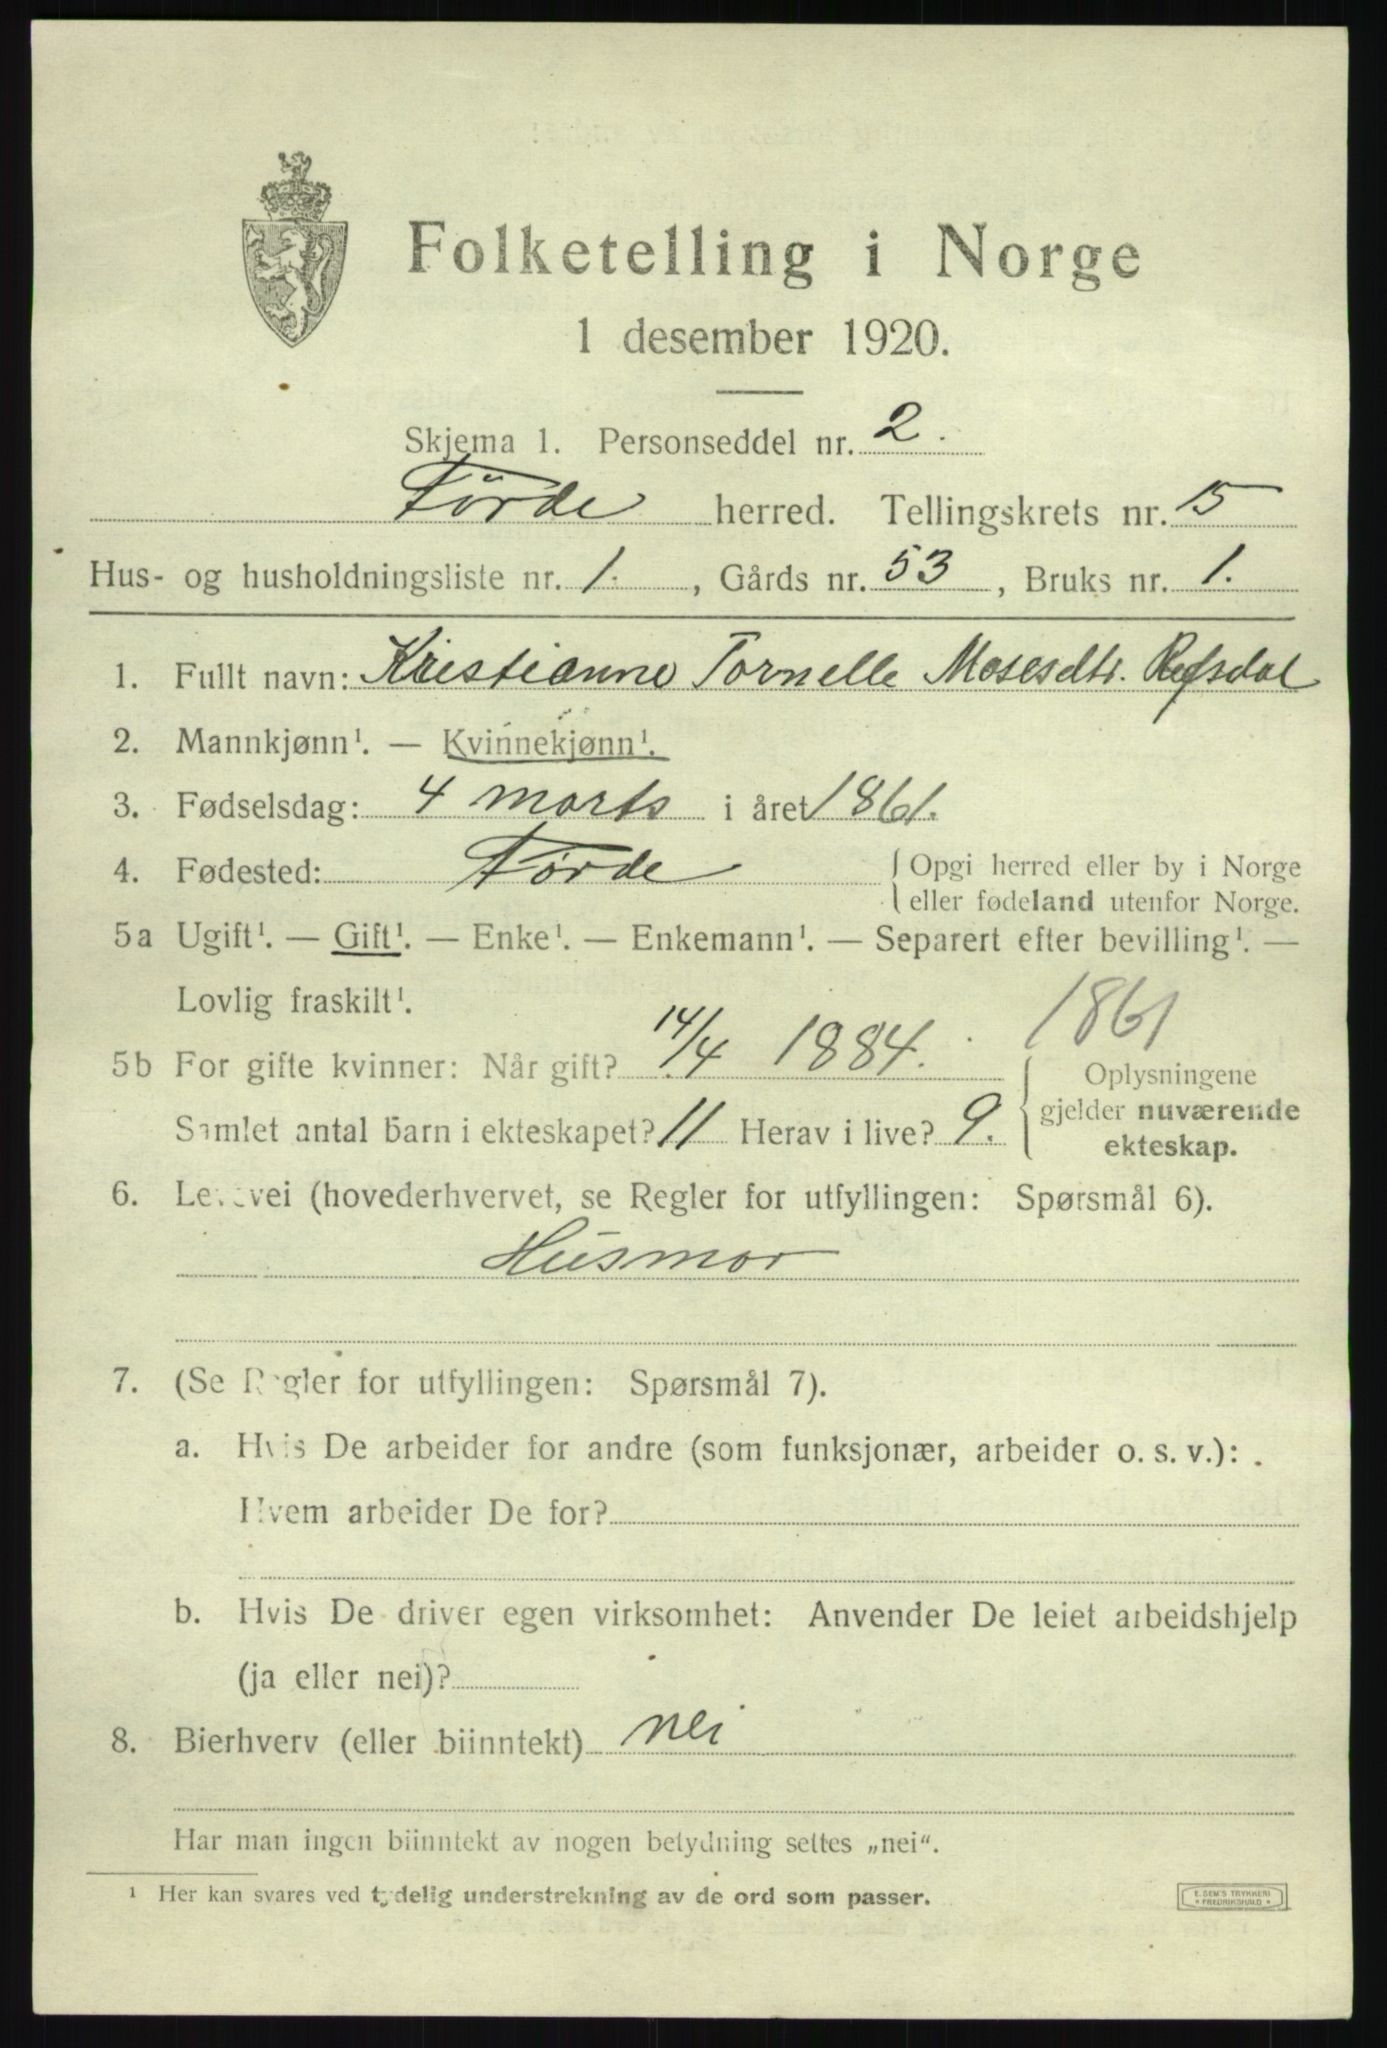 Folketelling i Norge
1 desember 1920.
Skjema 1. Personseddel nr. 2.
Förde herred. Tellingskrets nr. 15
Hus- og husholdningsliste nr. 1. , Gårds nr. 53 , Bruks nr. 1.
1. Fullt navn: Kristianne Tornelle Mosesdtr. Refsdal
2. Mannkjønn¹. — Kvinnekjønn¹.
3. Fødselsdag: 4 marts i året 1861.
4. Fødested: Førde { Opgi herred eller by i Norge
eller fødeland utenfor Norge.
5a Ugift¹. — Gift¹. — Enke¹. — Enkemann¹. — Separert efter bevilling¹. —
Lovlig fraskilt¹.
1861
5b For gifte kvinner: Når gift? 14/4 1884. Oplysningene
gjelder nuværende
Samlet antal barn i ekteskapet? 11 Herav i live? 9. ekteskap.
6. Levevei (hovederhvervet, se Regler for utfyllingen: Spørsmål 6).
Husmor
7. (Se Regler for utfyllingen: Spørsmål 7).
a. Hvis De arbeider for andre (som funksjonær, arbeider o. s. v.):
Hvem arbeider De for?
b. Hvis De driver egen virksomhet: Anvender De leiet arbeidshjelp
(ja eller nei)?
8. Bierhverv (eller biinntekt) nei
Har man ingen biinntekt av nogen betydning settes „nei“.
¹ Her kan svares ved tydelig understrekning av de ord som passer.
E. SEM'S TRYKKERI
FREDRIKSHALD